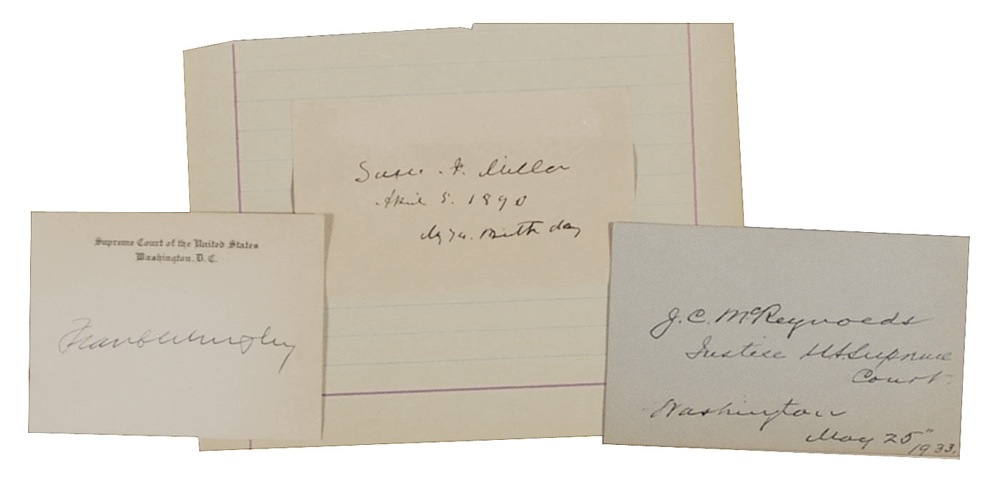 Supreme Court of the United States
Washington, D. C.
Frank Murphy
F. Miller
April 5. 1890
My 74. Birth day
J. C. McReynolds
Justice US Supreme
Court.
Washington
May 25"
1933.